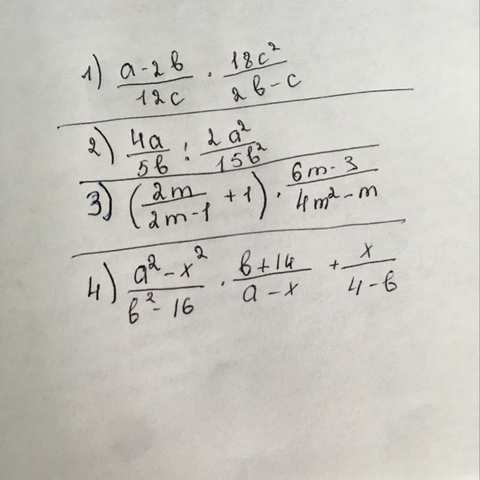 1) (a-2b)/(12c) · (18c²)/(2b-c)
2) (4a)/(5b) : (2a²)/(15b²)
3) ((2m)/(2m-1) + 1) · (6m-3)/(4m²-m)
4) (a²-x²)/(b²-16) · (b+14)/(a-x) + x/(4-b)